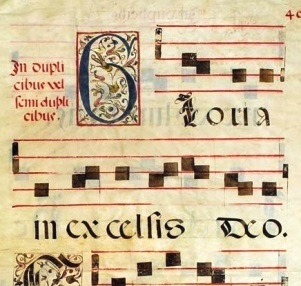 40
In dupli
cibus vel
semidupli
cibus.
Gloria
in excelsis Deo.